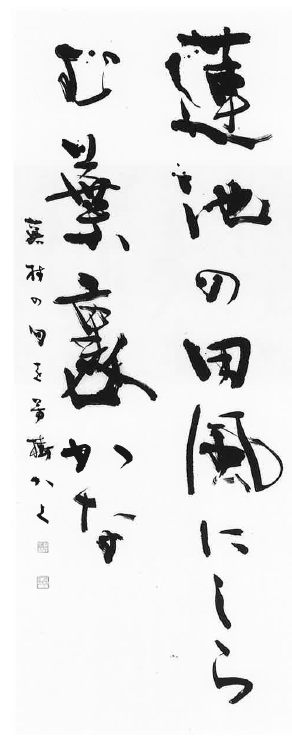 蓮池の田風にしら
む葉裏かな
蕪村の句を